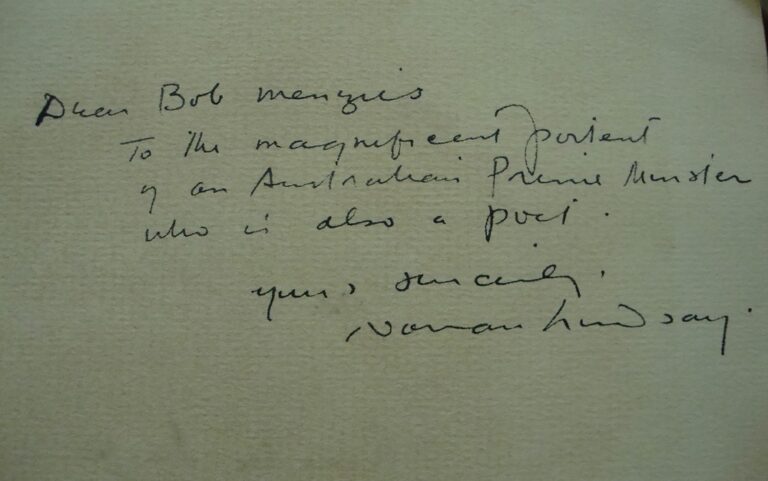 Dear Bob Menzies
To the magnificent portent
of an Australian Prime Minister
who is also a poet.
yours sincerely.
Norman Lindsay.